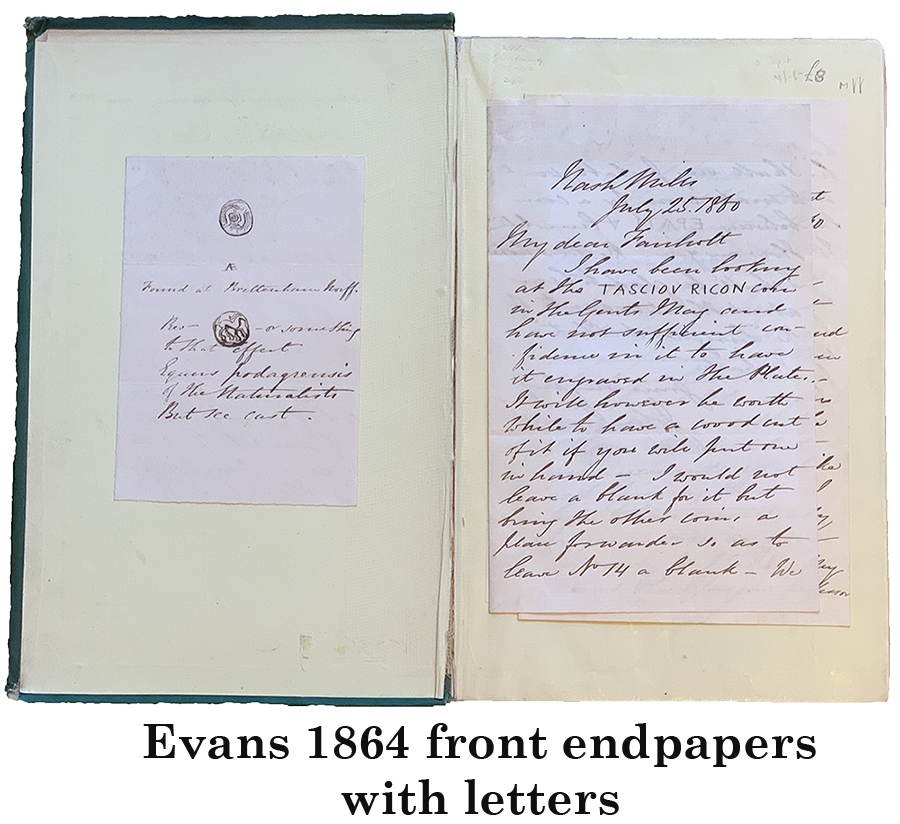 Æ
Found at Brettenham Norff.
Rev — — or something
to that effect
Equus podagrensis
of the Naturalists
But see cast.
£8
Nash Mills
July 25. 1860
My dear Fairholt
I have been looking
at the TASCIOV RICON coin
in the Gents Mag and
have not sufficient con-
fidence in it to have
it engraved in the Plates. -
It will however be worth
while to have a wood cut
of it if you will put one
in hand — I would not
leave a blank for it but
bring the other coins a
place forwarder so as to
leave No 14 a blank — We
Evans 1864 front endpapers
with letters